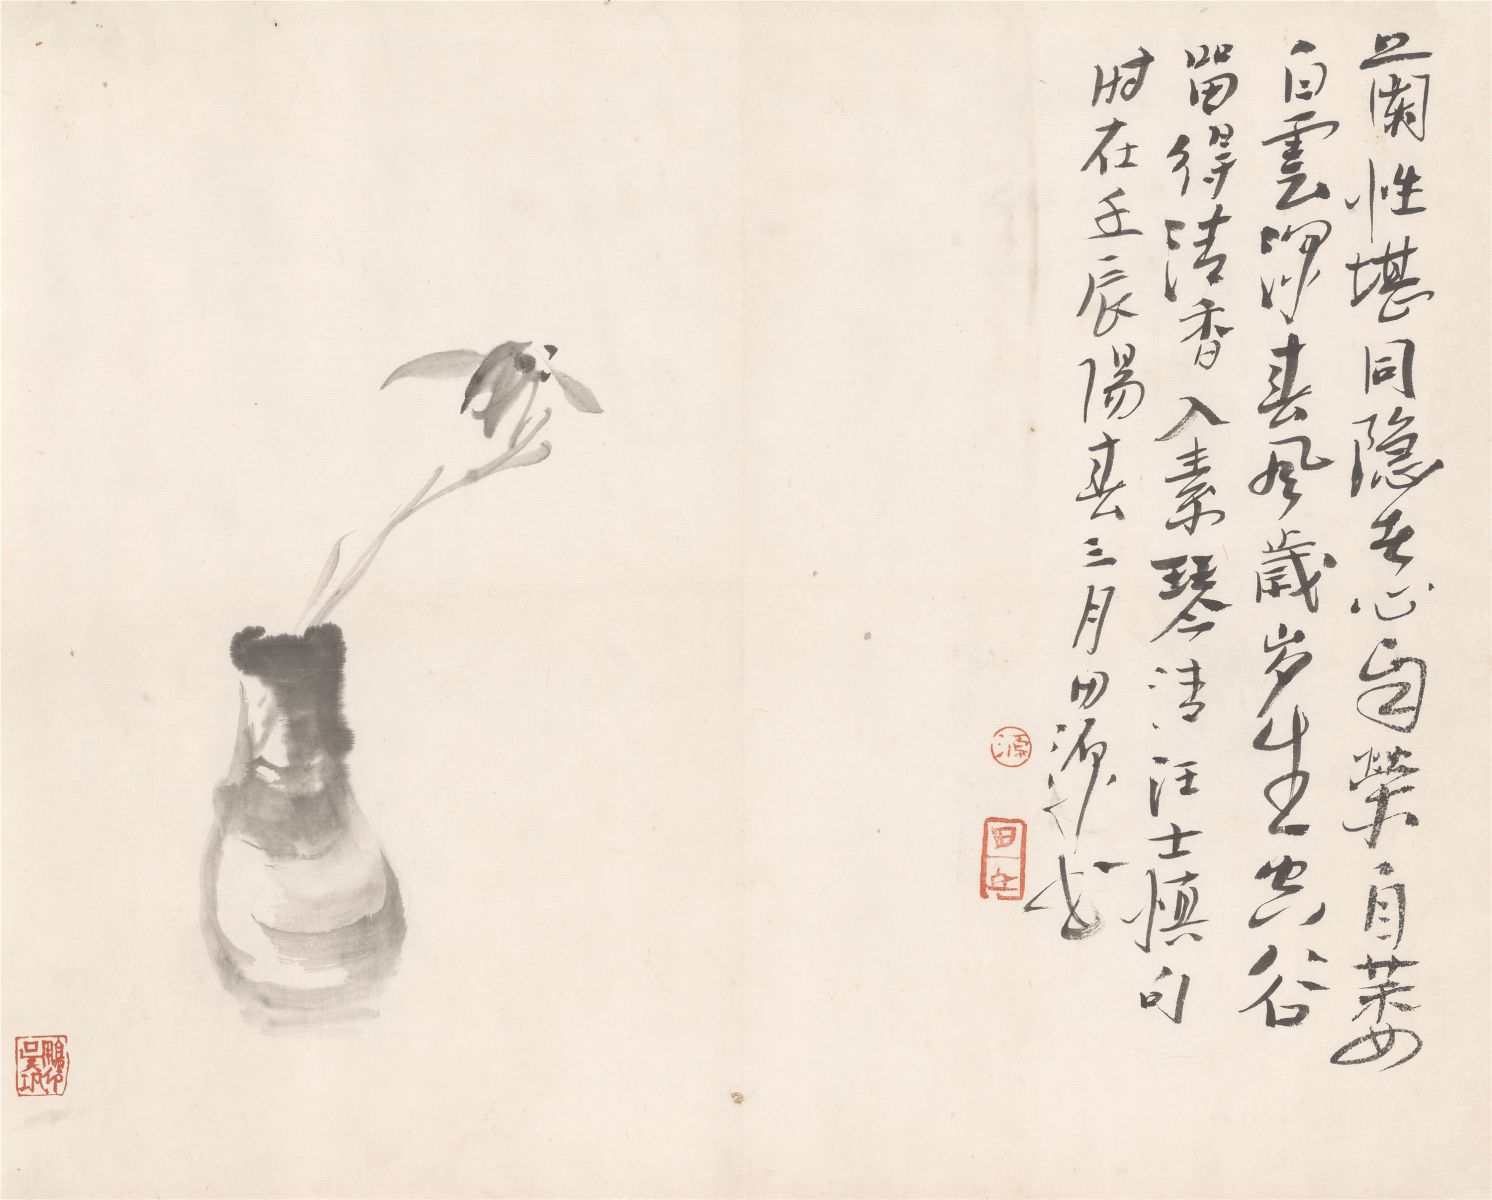 蘭性堪同隐者心自榮自萎
白雲深春風歲岁生空谷
留得清香入素琴清汪士慎句
时在壬辰陽春三月田源
源